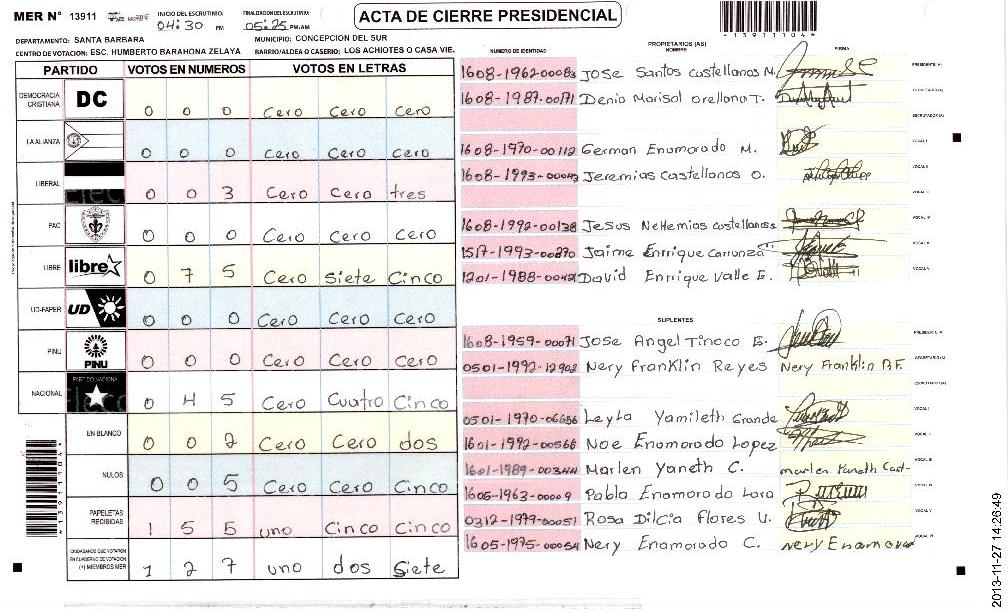 MER N° 13911
INICIO DEL ESCRUTINIO:
04:30 PM
FINALIZACION DEL ESCRUTINIO:
05:25 PM
ACTA DE CIERRE PRESIDENCIAL
*139111044*
DEPARTAMENTO: SANTA BARBARA
MUNICIPIO: CONCEPCION DEL SUR
CENTRO DE VOTACION: ESC. HUMBERTO BARAHONA ZELAYA
BARRIO/ALDEA O CASERIO: LOS ACHIOTES O CASA VIE.
PARTIDO VOTOS EN NUMEROS VOTOS EN LETRAS
DEMOCRACIA CRISTIANA DC 0 0 0 Cero Cero Cero
LA ALIANZA 0 0 0 Cero Cero Cero
LIBERAL 0 0 3 Cero Cero tres
PAC 0 0 0 Cero Cero Cero
LIBRE libre 0 7 5 Cero Siete Cinco
UD-FAPER UD 0 0 0 Cero Cero Cero
PINU PINU 0 0 0 Cero Cero Cero
NACIONAL PARTIDO NACIONAL 0 4 5 Cero Cuatro Cinco
EN BLANCO 0 0 2 Cero Cero dos
NULOS 0 0 5 Cero Cero Cinco
PAPELETAS RECIBIDAS 1 5 5 uno Cinco Cinco
CIUDADANOS QUE VOTARON EN CUADERNO DE VOTACION (+) MIEMBROS MER 1 2 7 uno dos Siete
NUMERO DE IDENTIDAD
PROPIETARIOS (AS)
NOMBRE
FIRMA
1608-1962-00083 Jose Santos Castellanos M. PRESIDENTE (A)
1608-1987-00171 Denia Marisol Orellana T. SECRETARIO (A)
ESCRUTADOR (A)
1608-1970-00112 German Enamorado M. VOCAL I
1608-1993-00042 Jeremias Castellanos O. VOCAL II
VOCAL III
1608-1992-00138 Jesus Nehemias Castellanos VOCAL IV
1517-1993-00270 Jaime Enrrique Carranza VOCAL V
1201-1988-00421 David Enrrique Valle E. VOCAL VI
SUPLENTES
1608-1959-00071 Jose Angel Tinoco E. PRESIDENTE (A)
0501-1992-12902 Nery Franklin Reyes Nery Franklin R.F. SECRETARIO (A)
ESCRUTADOR (A)
0501-1970-06656 Leyla Yamileth Grande VOCAL I
1601-1992-00566 Noe Enamorado Lopez VOCAL II
1601-1989-00344 Marlen Yaneth C. marlen Yaneth Cast- VOCAL III
1605-1963-00009 Pablo Enamorado Lara VOCAL IV
0312-1979-00051 Rosa Dilcia Flores U. VOCAL V
1605-1975-00054 Nery Enamorado C. Nery Enamorado VOCAL VI
2013-11-27 14:26:49